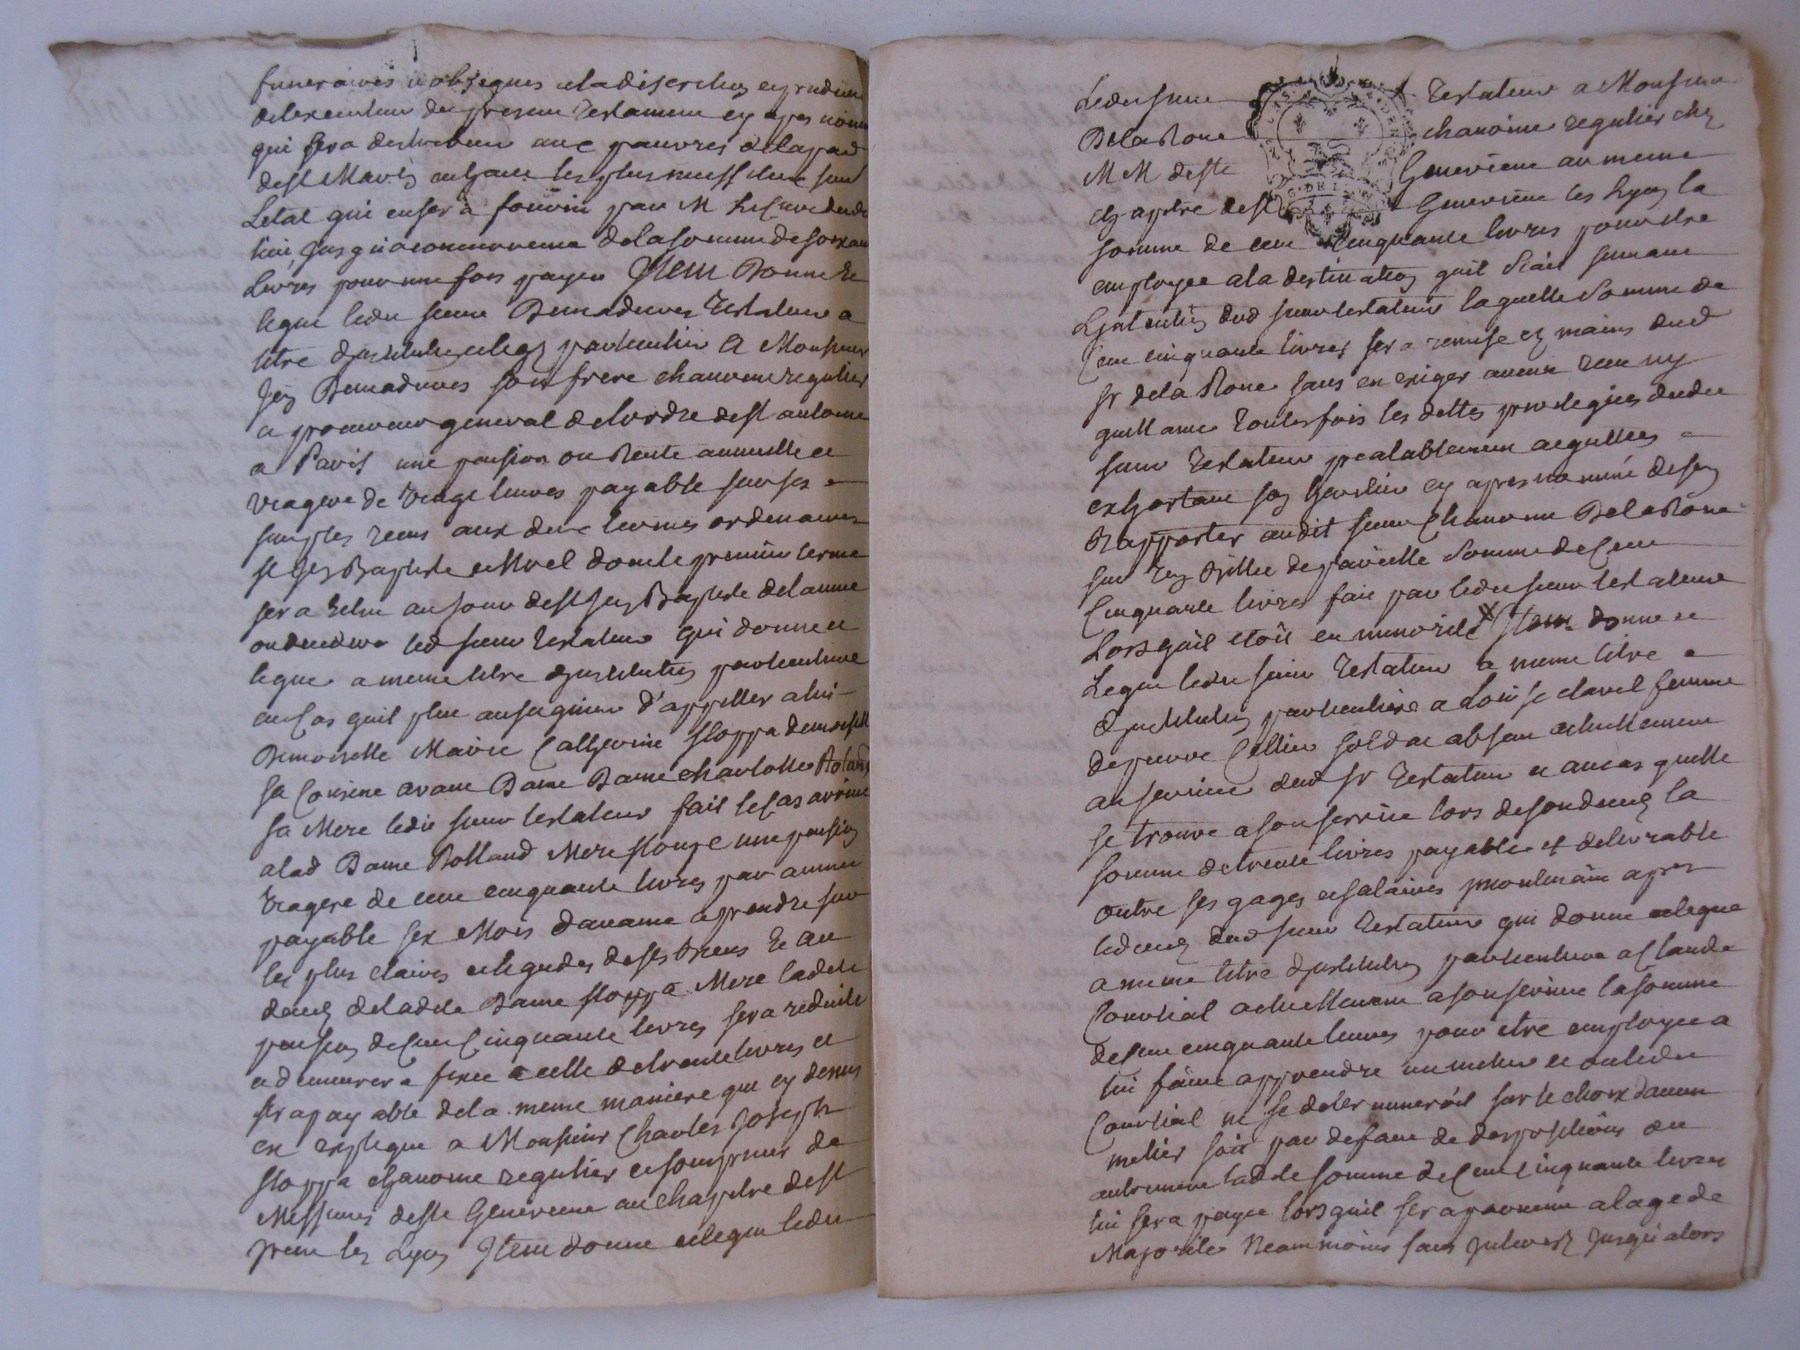 funeraires et obseques a la discretion et prudence
de l'executeur du present testament cy apres nommé
qui sera distribuée aux pauvres de la par
de St Maris enhonne les plus necessiteux suiv
L'etat qui en sera fourni par M Le Curé dudit
lieu jusqu'a concurrence de la somme de soixan
livres pour une fois payée Item Donne Et
legue ledit sieur Dumaduves Testateur a
titre d'institution et legs particulier A Monsieur
Jean Dumaduves son frere chanoine regulier
et procureur general de l'ordre de St antoine
a Paris une pension ou Rente annuelle et
viagere de vingt livres payable sur ses
simples recus aux deux termes ordinaires
St Jean Baptiste et Noel dont le premier terme
sera Echu au jour de St Jean Baptiste de l'année
ou decedera led sieur Testateur qui donne et
legue a meme titre d'institution particuliere
au Cas qu'il plut au seigneur d'appeller a lui
Demoiselle Marie Catherine Stoppa demoiselle
sa Cousine avant Dame Dame charlotte Roland
sa Mere ledit sieur testateur fait le Cas arrivé
a lad Dame Rolland Mere Stoppe une pension
viagere de cent cinquante livres par année
payable six Mois d'avance a prendre sur
les plus claires et liquides de ses biens Et au
deces de ladite Dame Stoppa Mere ladite
pension de Cent Cinquante livres sera reduite
et demeurera fixée a celle de trente livres et
sera payable de la meme maniere que cy dessus
est expliqué a Monsieur Charles Joseph
Stoppa chanoine regulier et souprieur de
Messieurs de Ste Genevieve au Chapitre de St
jrenée les Lyon Item donne et legue ledit
Ledit sieur Testateur a Monsieur
De la Roue chanoine regulier chez
M M de Ste Genevieve au meme
chapitre de St Genevieve les Lyon la
somme de cent cinquante livres pour etre
employée a la destination qu'il sçait suivant
L'intention dud sieur testateur laquelle somme de
Cent cinquante livres sera remise es mains dud
Sr de la Roue sans en exiger aucun recu ny
quittance Toutes fois les dettes privilegiées dudit
sieur Testateur prealablement acquittées
exhortant son heritier cy apres nommé de s'en
Rapporter audit sieur Chanoine De la Roue
sur un Billet de pareille somme de Cent
Cinquante livres fait par ledit sieur testateur
Lorsqu'il etoit en minorité X Item donne et
Legue ledit sieur Testateur a meme titre
d'institution particuliere a Loüise clavel femme
de pierre Cellier soldat absent actuellement
au service dud Sr Testateur et au cas quelle
se trouve a son service lors de son deces la
somme de trente livres payable et delivrable
outre ses gages et salaires incontinant apres
le deces dud sieur Testateur qui donne et legue
a meme titre d'institution particuliere a Claude
Courtial actuellement a son service la somme
de Cent cinquante livres pour etre employée a
lui faire apprendre un metier et ou ledit
Courtial ne se determineroit sur le choix d'aucun
metier soit par defaut de dispositions ou
autrement ladite somme de Cent Cinquante livres
lui sera payée lors qu'il sera parvenu a l'age de
Majorité Neammoins sans jnterest jusqu'alors